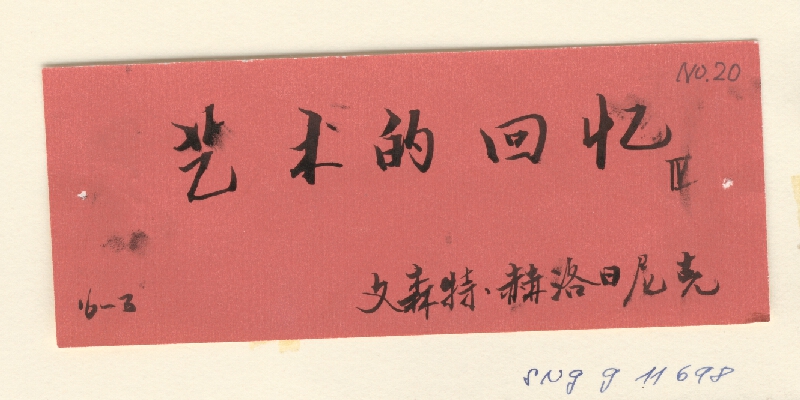 NO.20
艺术的回忆
IV
文森特·赫洛日尼克
16-3
SNg g 11698